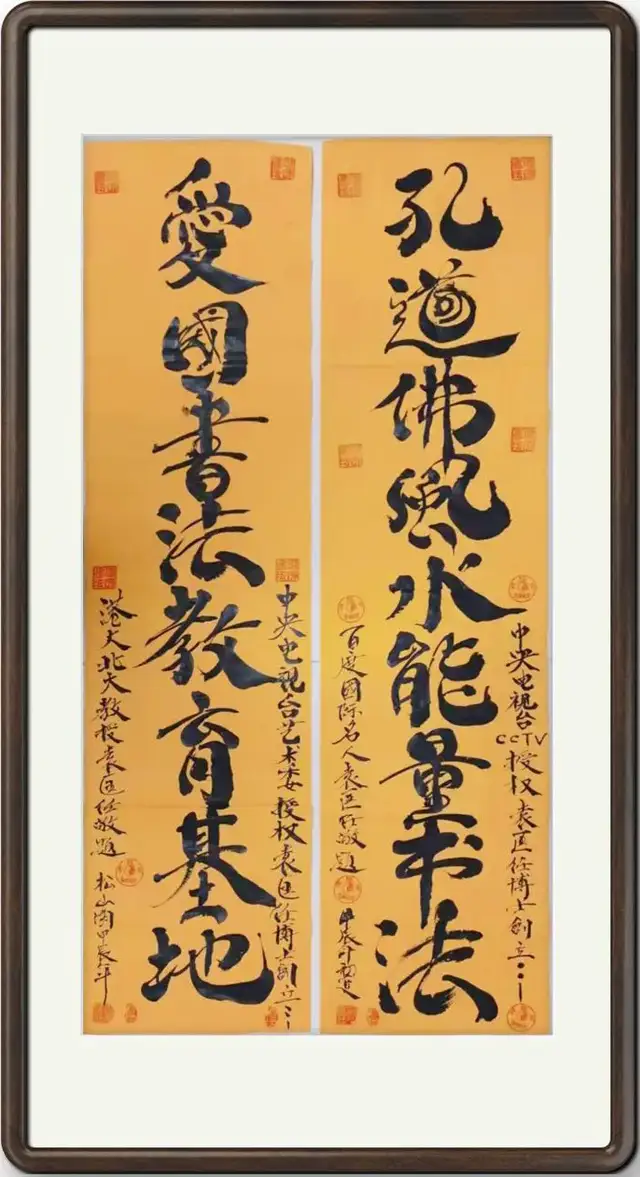 中央电视台CCTV授权袁匡任博士創立:
孔道佛風水能量书法
百度国际名人袁匡任敬題
甲辰年初夏
中央电视台艺术委授权袁匡任博士創立:
愛國書法教育基地
港大北大教授袁匡任敬題
松山阁甲辰年